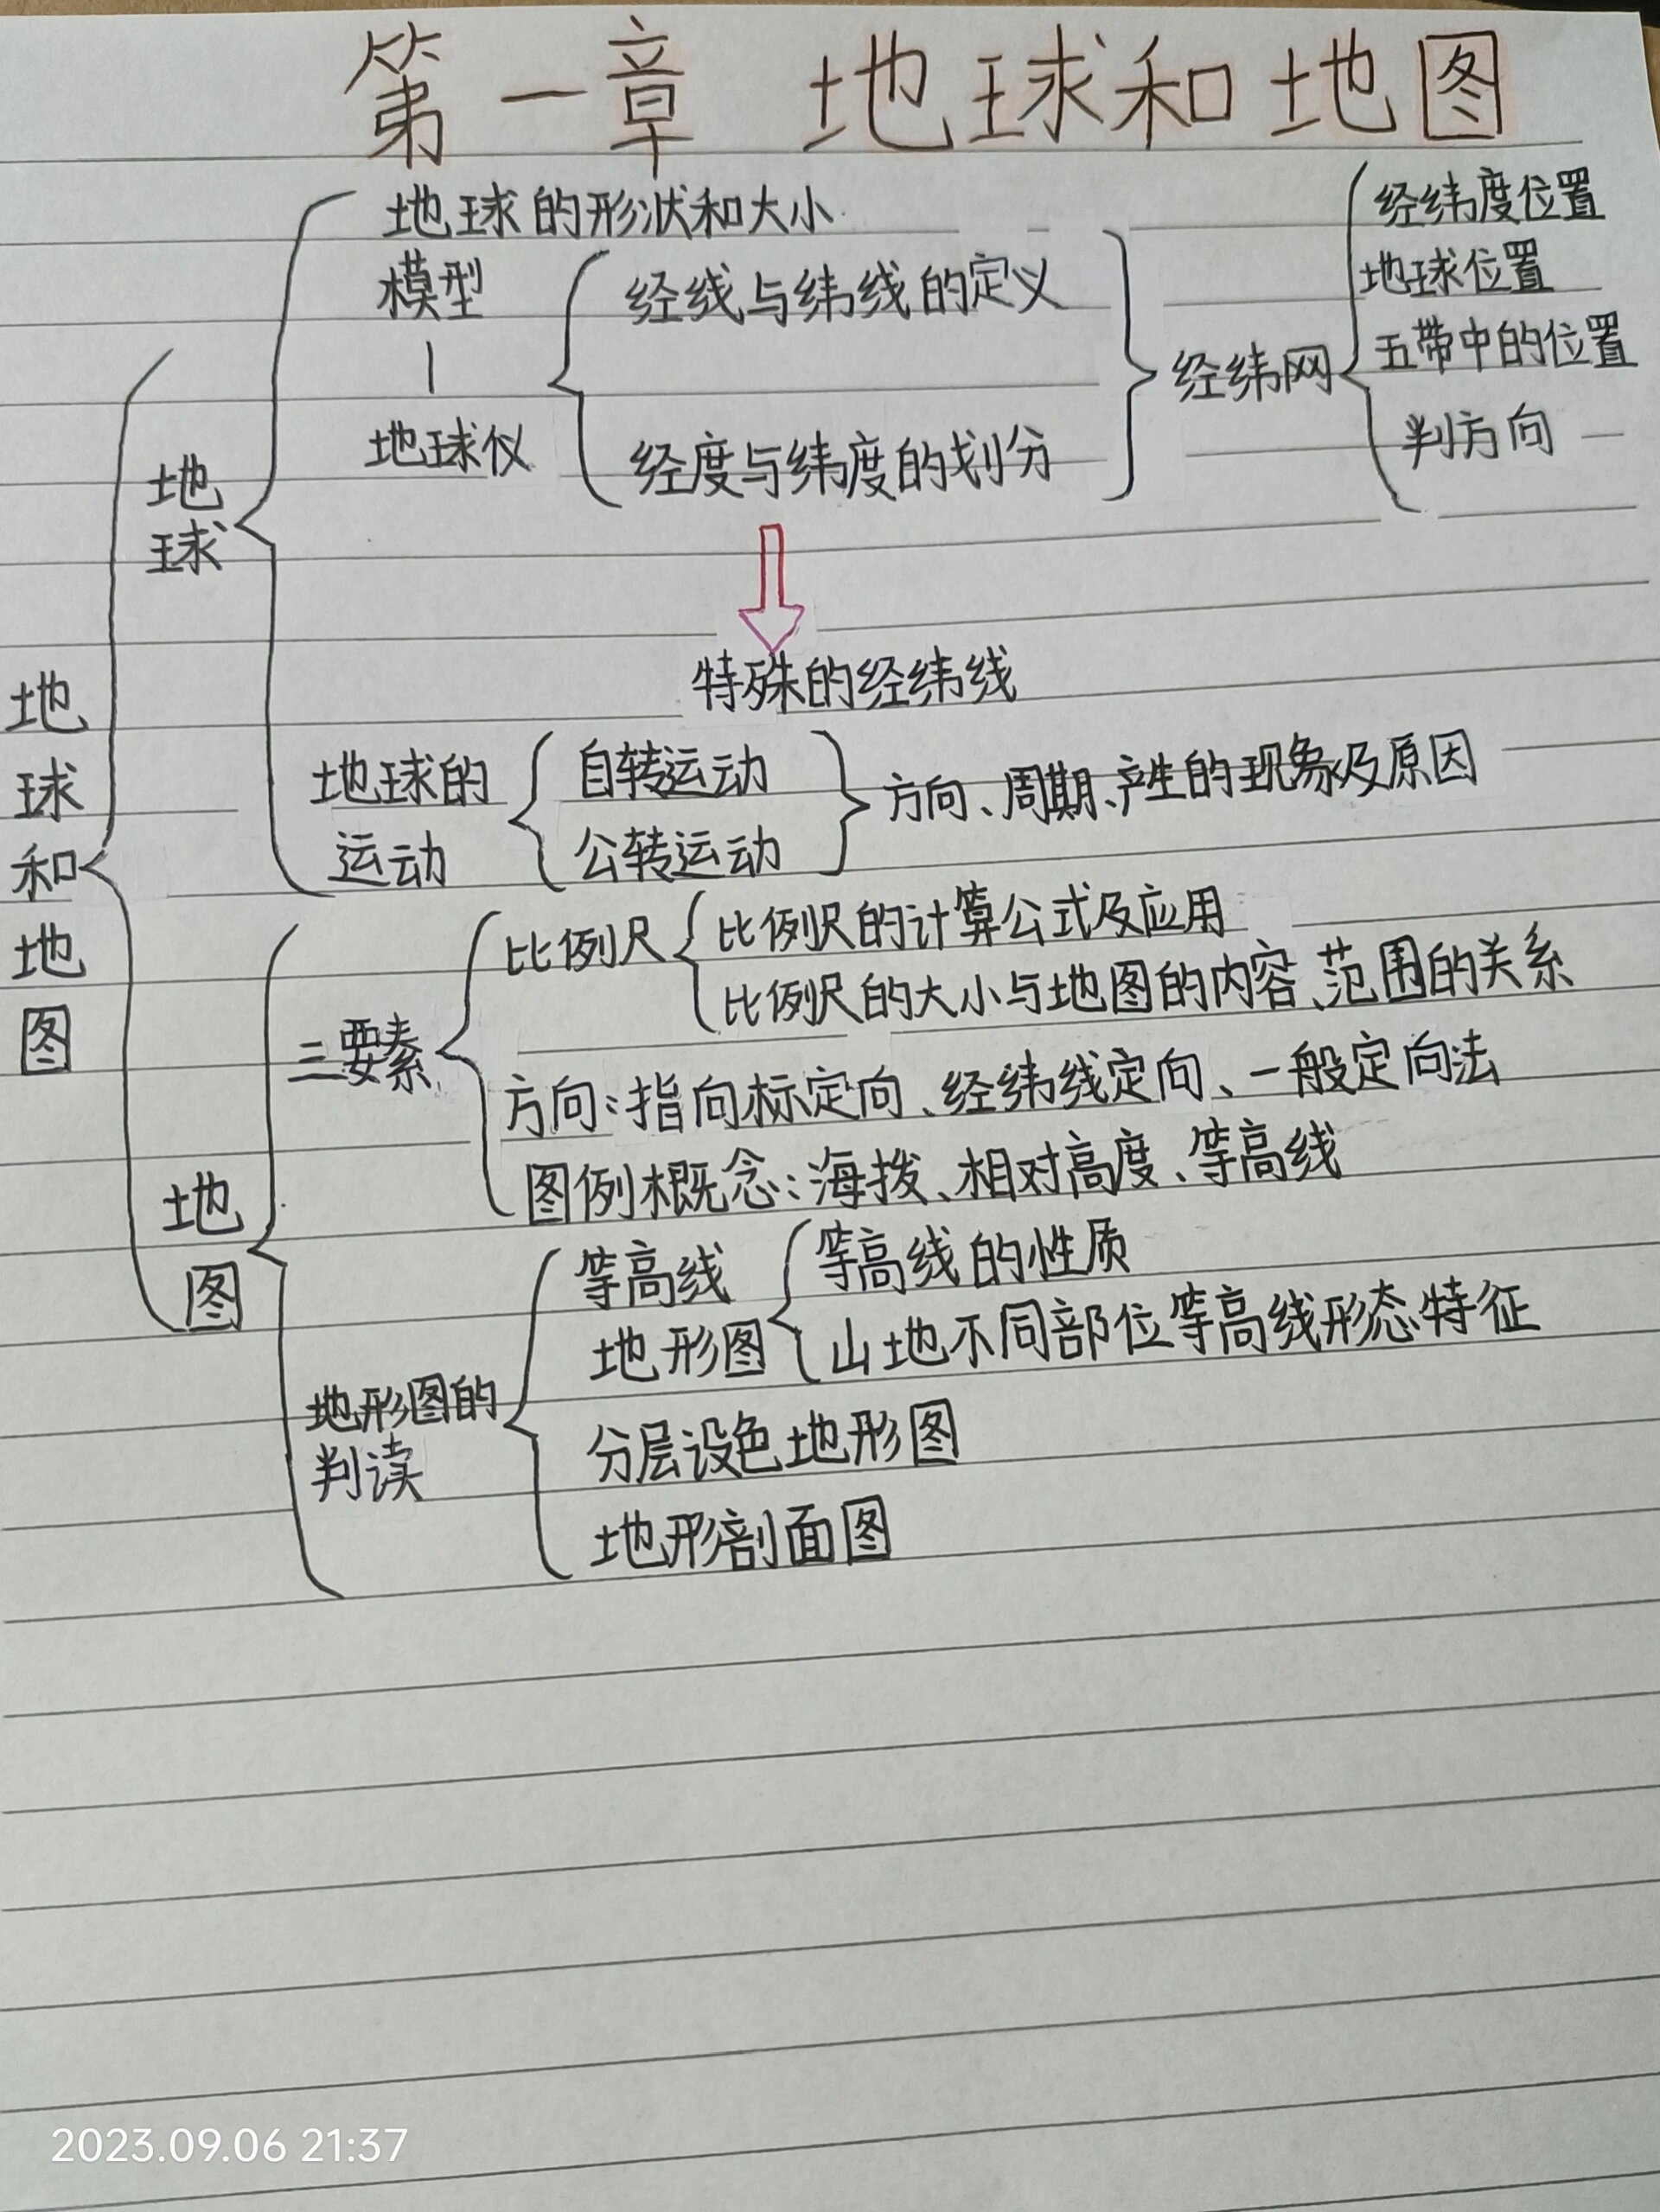 第一章 地球和地图
地球和地图
地球
地球的形状和大小
模型
地球仪
经线与纬线的定义
经度与纬度的划分
经纬网
经纬度位置
地球位置
五带中的位置
判方向
特殊的经纬线
地球的
运动
自转运动
公转运动
方向、周期、产生的现象及原因
地图
三要素
比例尺
比例尺的计算公式及应用
比例尺的大小与地图的内容、范围的关系
方向:指向标定向、经纬线定向、一般定向法
图例概念:海拨、相对高度、等高线
地形图的
判读
等高线
地形图
等高线的性质
山地不同部位等高线形态特征
分层设色地形图
地形剖面图
2023.09.06 21:37